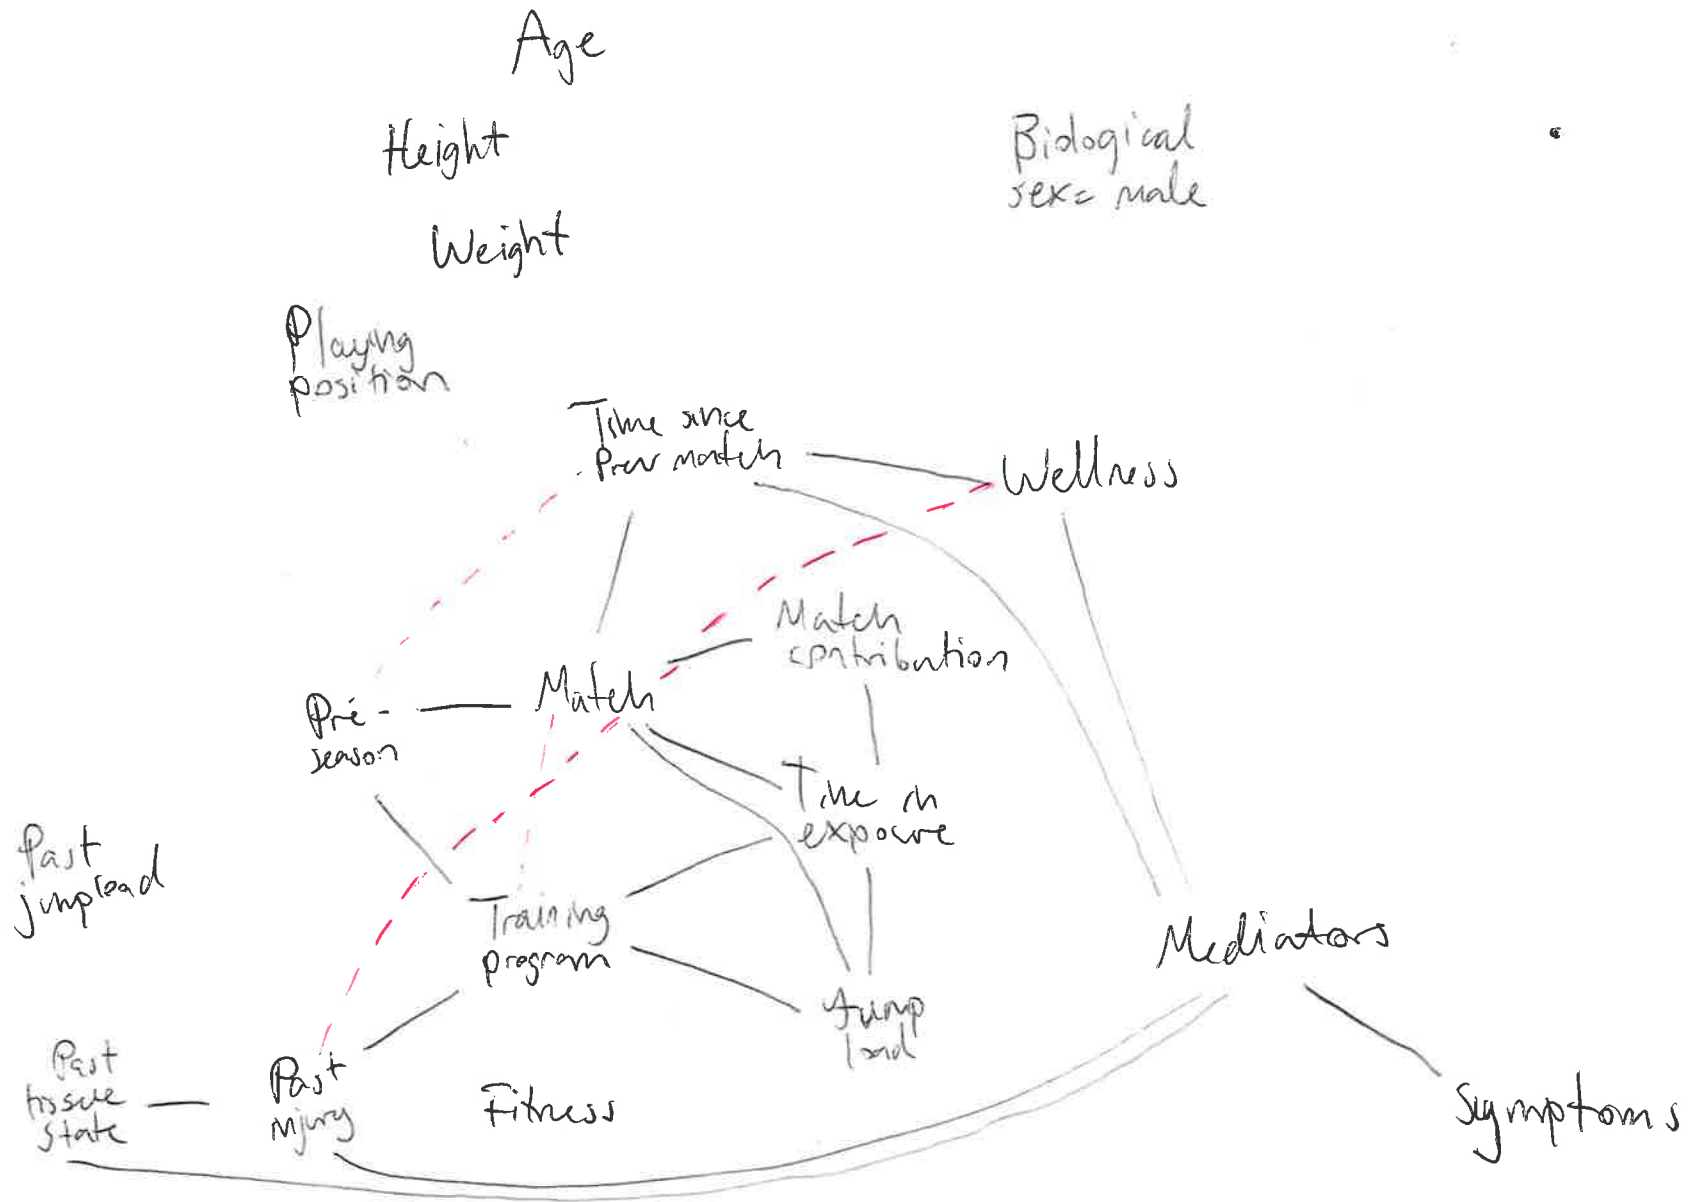 Age
Height
Biological
sex= male
Weight
Playing
position
Time since
Prev match
Wellness
Match
contribution
Match
Pre-
season
Time in
exposure
Past
jumpload
Training
program
Mediators
Jump
load
Past
tissue
state
Past
injury
Fitness
Symptoms